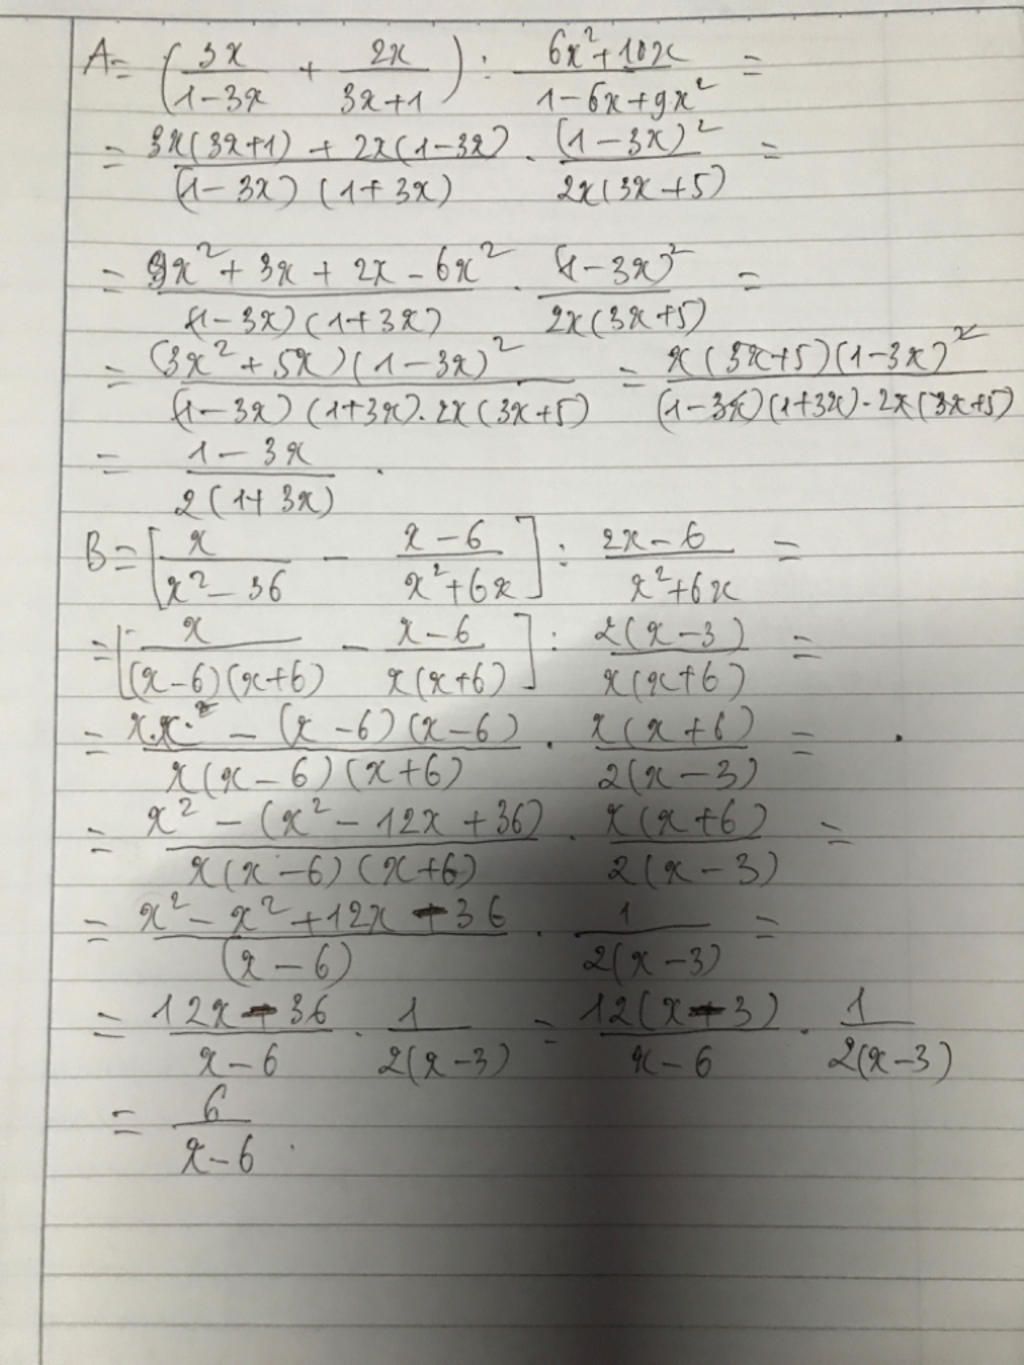 A = (3x/(1-3x) + 2x/(3x+1)) : (6x²+10x)/(1-6x+9x²) =
= (3x(3x+1) + 2x(1-3x))/((1-3x)(1+3x)) . (1-3x)²/(2x(3x+5)) =
= (9x²+3x+2x-6x²)/((1-3x)(1+3x)) . (1-3x)²/(2x(3x+5)) =
= ((3x²+5x)(1-3x)²)/((1-3x)(1+3x).2x(3x+5)) = (x(3x+5)(1-3x)²)/((1-3x)(1+3x).2x(3x+5))
= (1-3x)/(2(1+3x)) .
B = [x/(x²-36) - (x-6)/(x²+6x)] : (2x-6)/(x²+6x) =
= [x/((x-6)(x+6)) - (x-6)/(x(x+6))] : (2(x-3))/(x(x+6)) =
= (x.x - (x-6)(x-6))/(x(x-6)(x+6)) . (x(x+6))/(2(x-3)) =
= (x² - (x²-12x+36))/(x(x-6)(x+6)) . (x(x+6))/(2(x-3)) =
= (x²-x²+12x-36)/((x-6)) . 1/(2(x-3)) =
= (12x-36)/(x-6) . 1/(2(x-3)) = (12(x-3))/(x-6) . 1/(2(x-3))
= 6/(x-6) .